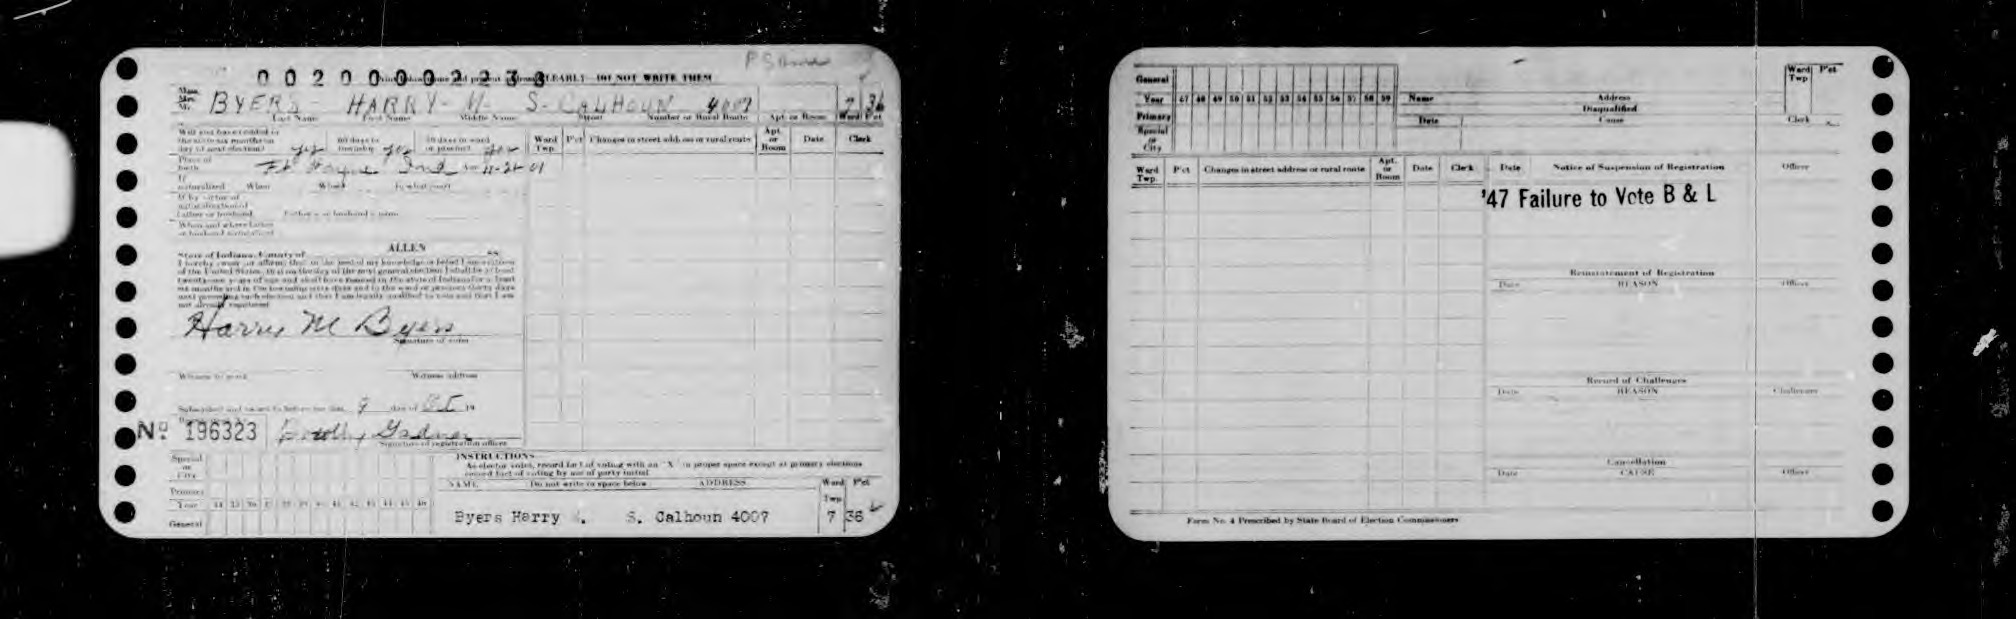 00200002238
CLEARLY DO NOT WRITE THEM
Miss. Mrs. Mr. BYERS - HARRY - M S - CALHOUN 4007 7 36
Last Name First Name Middle Name Street Number or Rural Route Apt. or Room Ward P'ct
Will you have resided in the state six months on day of next election? yes 60 days in township yes 30 days in ward or precinct yes
Ward Twp. P'ct Changes in street address or rural route Apt. or Room Date Clerk
Place of birth Ft Wayne Ind
If naturalized When Where In what court
If by virtue of naturalization of father or husband, Father's or husband's name
When and where father or husband naturalized
ALLEN
State of Indiana, County of SS
I hereby swear (or affirm) that to the best of my knowledge or belief I am a citizen
of the United States, that on the day of the next general election I shall be at least
twenty-one years of age and shall have resided in the state of Indiana for at least
six months and in the township sixty days and in the ward or precinct thirty days
next preceding such election and that I am legally qualified to vote and that I am
not already registered
Harry M Byers
Signature of voter
Witness to mark Witness address
Subscribed and sworn to before me this 9 day of 19
No. 196323
Signature of registration officer
Special or City
Primary
Year
General
INSTRUCTIONS
As elector votes, record fact of voting with an "X" in proper space except at primary elections
record fact of voting by use of party initial
NAME Do not write in space below ADDRESS Ward Twp P'ct
Byers Harry S. Calhoun 4007 7 36
General
Year 47 48 49 50 51 52 53 54 55 56 57 58 59
Primary
Special or City
Name Address
Disqualified
Date Cause
Ward Twp P'ct
Clerk
Ward Twp. P'ct Changes in street address or rural route Apt. or Room Date Clerk
Date Notice of Suspension of Registration Officer
'47 Failure to Vote B & L
Reinstatement of Registration
Date REASON Officer
Record of Challenges
Date REASON Challenger
Cancellation
Date CAUSE Officer
Form No. 4 Prescribed by State Board of Election Commissioners